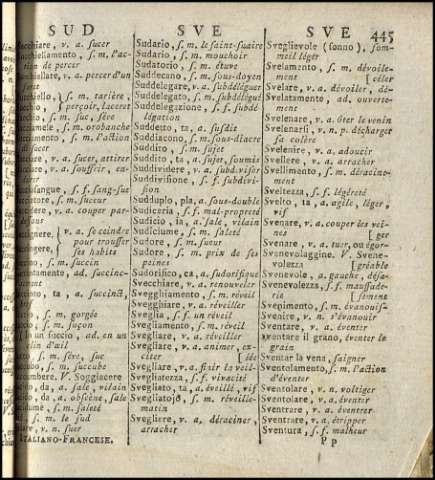 SUD
SVE
SVE
445
cchiare, v. a. sucer
chiellamento, s. m. l'ac-
tion de percer
chiellare, v. a. percer d'un
chiello, s. m. tarière,
chio, perçoir, laceret
chio, s. m. suc, sève
ciamele, s. m. orobanche
ciamento, s. m. l'action
d'sucer
v. a. sucer, attirer
v. a. souffrir, en-
durer
sangue, s. f. sang-sue
tore, s. m. suceur
v. a. couper par-
dessous
gnere, v. a. se ceindre
ngere, pour trousser
ses habits
no, s. m. succin
tamente, ad. succinc-
tement
to, ta, a. succinct,
s. m. gorgée
s. m. suçon
in un succio, ad. en un
clin d'œil
s. m. sève, suc
bo, s. m. succube
umbere. V. Soggiacere
da, a. sale, vilain
da, a. obscène, sale
dume, s. m. saleté
s. m. le sud
v. n. suer
ITALIANO-FRANCESE.
Sudario, s. m. le saint-suaire
Sudario, s. m. mouchoir
Sudatorio, s. m. étuve
Suddecano, s. m. sous-doyen
Suddelegare, v. a. subdéléguer
Suddelegato, s. m. subdélégué
Suddelegazione, s. f. subdé-
légation
Suddetto, ta, a. susdit
Suddiacono, s. m. sous-diacre
Suddito, s. m. sujet
Suddito, ta, a. sujet, soumis
Suddividere, v. a. subdiviser
Suddivisione, s. f. subdivi-
sion
Sudduplo, pla, a. sous-double
Sudiceria, s. f. mal-propreté
Sudicio, ia, a. sale, vilain
Sudiciume, s. m. saleté
Sudore, s. m. sueur
Sudore, s. m. prix de ses
peines
Sudorifico, ca, a. sudorifique
Svecchiare, v. a. renouveler
Svegghiamento, s. m. réveil
Svegghiare, v. a. réveiller
Sveglia, s. f. un réveil
Svegliamento, s. m. réveil
Svegliare, v. a. éveiller
Svegliare, v. a. animer, ex-
citer [idée
Svegliare, v. a. fixer la veil-
Svegliatezza, s. f. vivacité
Svegliato, ta, a. éveillé, vif
Svegliatojo, s. m. réveille-
matin
Svegliere, v. a. déraciner,
arracher
Sveglievole (sonno), som-
meil léger
Svelamento, s. m. dévoile-
ment [céler
Svelare, v. a. dévoiler, dé-
Svelatamente, ad. ouverte-
ment
Svelenare, v. a. ôter le venin
Svelenarsi, v. n. p. décharger
sa colère
Svelenire, v. a. adoucir
Svellere, v. a. arracher
Svellimento, s. m. déracine-
ment
Sveltezza, s. f. légéreté
Svelto, ta, a. agile, léger,
vif
Svenare, v. a. couper les vei-
nes [ger
Svenare, v. a. tuer, ou égor-
Svenevolaggine. V. Svene-
volezza [gréable
Svenevole, a. gauche, désa-
Svenevolezza, s. f. maussade-
rie [sement
Svenimento, s. m. évanouis-
Svenire, v. n. s'évanouir
Sventare, v. a. éventer
Sventare il grano, éventer le
grain
Sventar la vena, saigner
Sventolamento, s. m. l'action
d'éventer
Sventolare, v. n. voltiger
Sventolare, v. a. éventer
Sventrare, v. a. éventrer
Sventrare, v. a. étripper
Sventura, s. f. malheur
P p